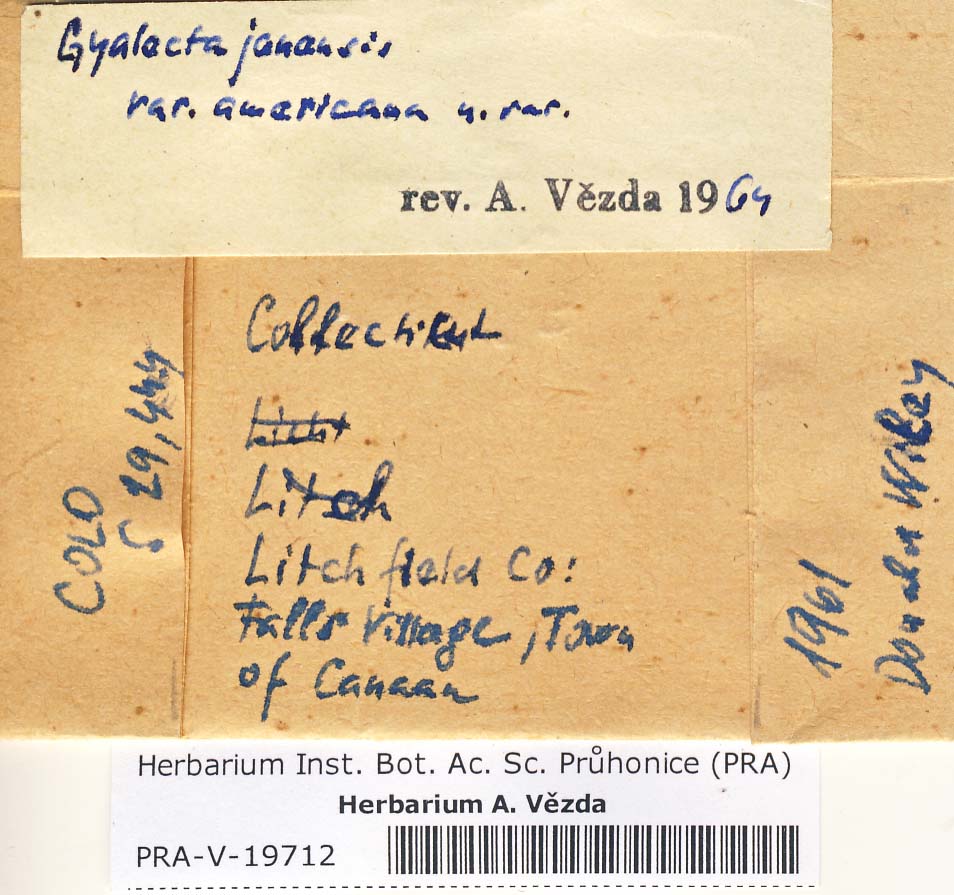 Gyalecta jenensis
var. americana n. var.
rev. A. Vězda 1964
Collectikut
Litch
Litchfield Co:
Falls Village, Town
of Canaan
COLO
S 29,444
1961
Donald Wiley
Herbarium Inst. Bot. Ac. Sc. Průhonice (PRA)
Herbarium A. Vězda
PRA-V-19712